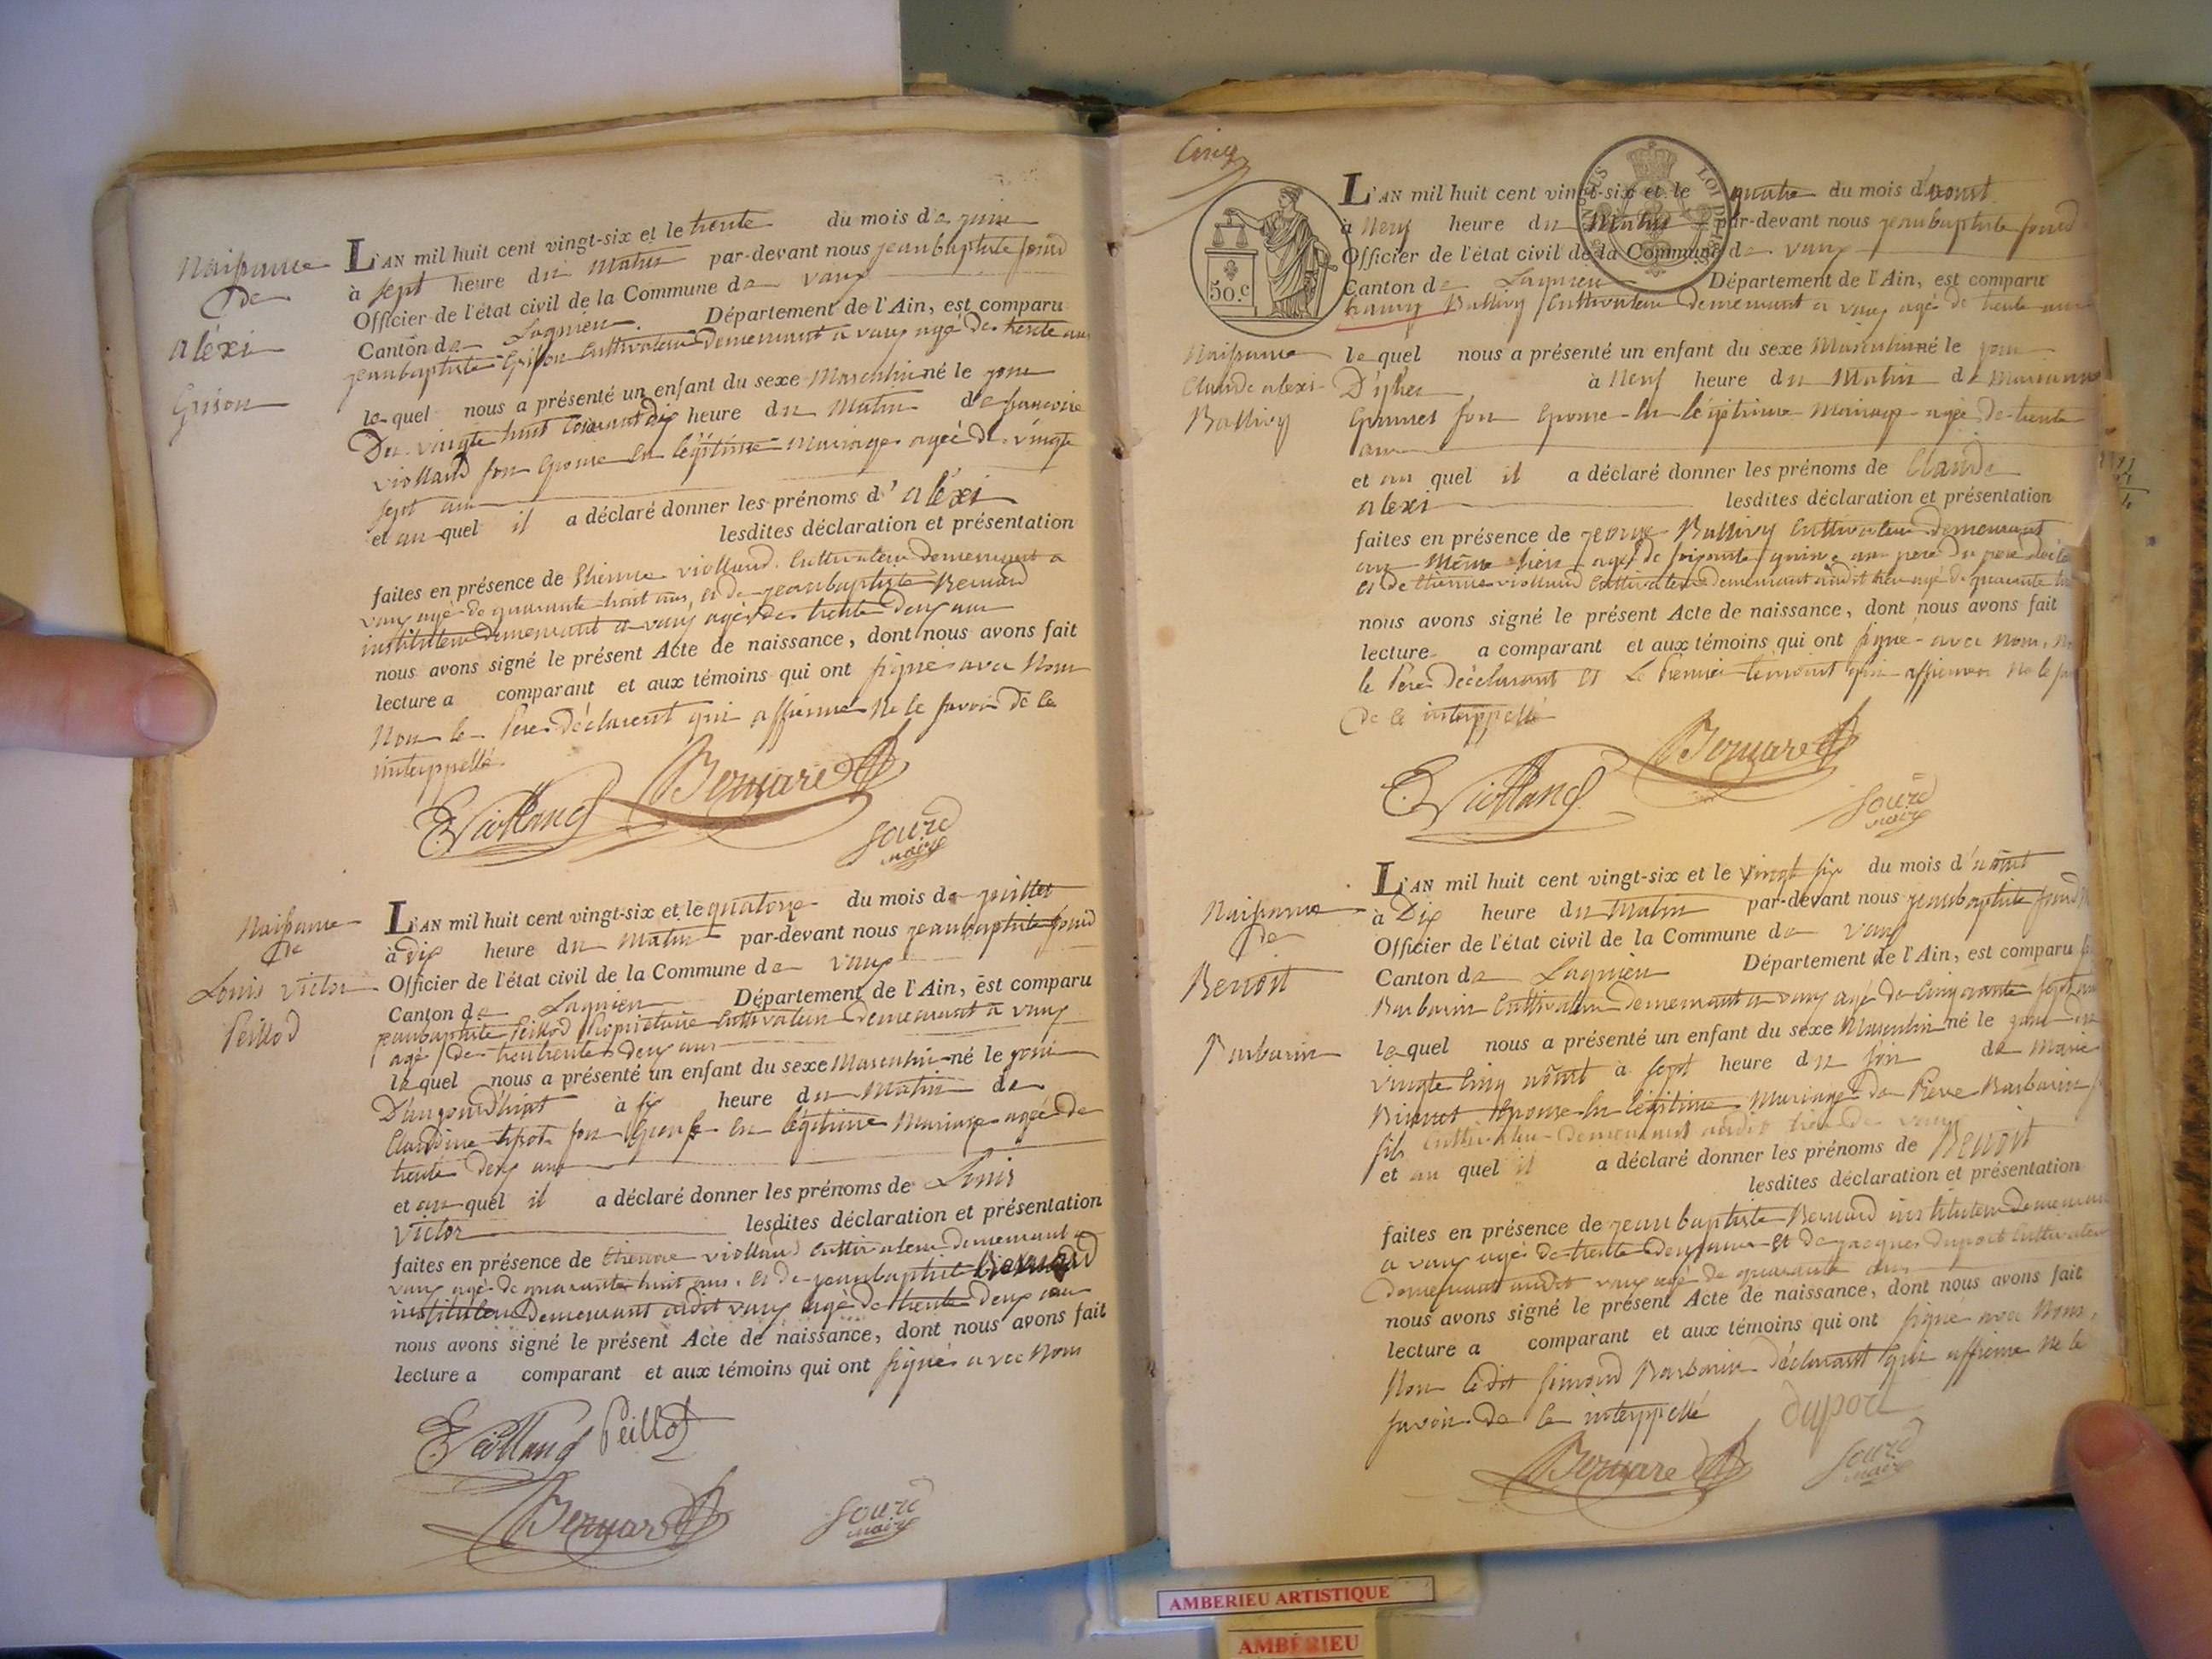 Naissance
de
alexi
Grison
L'AN mil huit cent vingt-six et le trente du mois de juin
à sept heure du matin par-devant nous jeanbaptiste sourd
Officier de l'état civil de la Commune de vaux
Canton de Lagnieu Département de l'Ain, est comparu
jeanbaptiste Grison Cultivateur demeurant a vaux agé de trente ans
lequel nous a présenté un enfant du sexe Masculin né le jour
De vingte huit Courant dix heure du Matin de francoise
violland son Epouse en légitime Mariage agée de vingte
sept ans
et au quel il a déclaré donner les prénoms d' alexi
lesdites déclaration et présentation
faites en présence de Etienne violland Cultivateur demeurant a
vaux agé de quarante huit ans, et de jeanbaptiste Bernard
instituteur demeurant a vaux agé de trente deux ans
nous avons signé le présent Acte de naissance, dont nous avons fait
lecture a comparant et aux témoins qui ont signé avec Nous
Non le Pere déclarent qui affirme Ne le savoir de ce
interppellé.
E Violland Bernard
Sourd
maire
Naissance
de
Louis victor
Peillod
L'AN mil huit cent vingt-six et le quatorze du mois de juillet
à dix heure du matin par-devant nous jeanbaptiste sourd
Officier de l'état civil de la Commune de vaux
Canton de Lagnieu Département de l'Ain, est comparu
jeanbaptiste Peillod Propriétaire Cultivateur demeurant a vaux
agé de trente deux ans
lequel nous a présenté un enfant du sexe Masculin né le jour
D'aujourd'huit à six heure du Matin de
Claudine tipot son Epouse en légitime Mariage agée de
trente deux ans
et au quel il a déclaré donner les prénoms de Louis
victor lesdites déclaration et présentation
faites en présence de Etienne violland Cultivateur demeurant a
vaux agé de quarante huit ans, et de jeanbaptiste Bernard
instituteur demeurant audit vaux agé de trente deux ans
nous avons signé le présent Acte de naissance, dont nous avons fait
lecture a comparant et aux témoins qui ont signés avec Nous
E Violland Peillod
Bernard Sourd
maire
Cinq
50.c
LOI DE
L'AN mil huit cent vingt-six et le quatre du mois d'aoust
à Neuf heure du Matin par-devant nous jeanbaptiste sourd
Officier de l'état civil de la Commune de vaux
Canton de Lagnieu Département de l'Ain, est comparu
Ballivy Cultivateur demeurant a vaux agé de trente ans
Naissance
Claude alexi
Ballivy
lequel nous a présenté un enfant du sexe Masculin né le jour
D'yher à Neuf heure du Matin de Marianne
son Epouse en légitime Mariage agée de trente
ans
et au quel il a déclaré donner les prénoms de Claude
alexi lesdites déclaration et présentation
faites en présence de george Ballivy Cultivateur demeurant
au Même lieu agé de soixante quinze ans pere du pere
et de Etienne violland Cultivateur demeurant audit lieu agé de quarante
nous avons signé le présent Acte de naissance, dont nous avons fait
lecture a comparant et aux témoins qui ont signé avec Nous,
le Pere déclarant et Le Premier temoint qui affirment Ne le
De ce interppellé
E Violland Bernard
Sourd
maire
Naissance
de
Benoit
Barbarin
L'AN mil huit cent vingt-six et le vingt six du mois d'aôut
à Dix heure du Matin par-devant nous jeanbaptiste sourd
Officier de l'état civil de la Commune de vaux
Canton de Lagnieu Département de l'Ain, est comparu
Barbarin Cultivateur demeurant a vaux agé de Cinquante sept ans
lequel nous a présenté un enfant du sexe Masculin né le jour
vingte Cinq aôut à sept heure du soir de Marie
Epouse en légitime Mariage de Piere Barbarin
fils Cultivateur demeurant audit lieu de vaux
et au quel il a déclaré donner les prénoms de Benoit
lesdites déclaration et présentation
faites en présence de jeanbaptiste Bernard instituteur demeurant
a vaux agé de trente deux ans et de jacques duport Cultivateur
demeurant audit vaux agé de quarante ans
nous avons signé le présent Acte de naissance, dont nous avons fait
lecture a comparant et aux témoins qui ont signé avec Nous,
Non le dit Simond Barbarin déclarant qui affirme Ne le
savoir de ce interppellé duport
Bernard Sourd
maire
AMBERIEU ARTISTIQUE
AMBÉRIEU